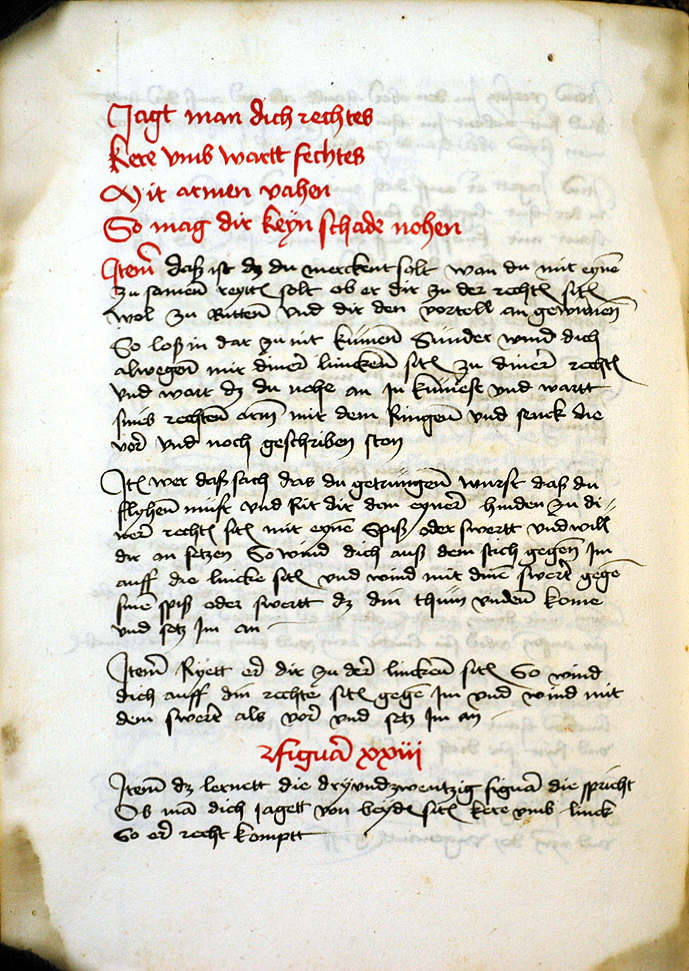 Jagt man dich rechtes
kere vmb wartt fechtes
Mit armen vahen
So mag dir keÿn schade nohen
Jtem̄ daß ist dz du merckent solt wan du mit eyne
zu samen̄ reytt solt ob er dir zu der recht sit
wol zu Ritten̄ vnd dir den vortell an gewinnen̄
So loß in dar zu nit kümen̄ Sunder wind dich
alwegen̄ mit diner̄ lincken̄ sit zu diner̄ recht
vnd wart dz du nohe an Jn kümest vnd wartt
sins rechten̄ arm̄ mit dem Ringen̄ vnd seuck die
vor̄ vnd noch geschriben ston
Jt wer daß sach das du getrungen̄ wurst daß du
flyhen̄ must vnd Rit dir dem eyner̄ hinden zu di
ner̄ recht sit mit eyne spiß oder swertt vnd will
dir an setzen So wind dich auß dem stich gegen Jm
auff die lincke sit vnd wind mit dine swert gege
sine spiß oder swertt dz din thum vnden̄ kome
vnd setz Jm an
Jtem̄ Ryett er̄ dir zu der̄ lincken̄ sit So wind
dich auff din rechte sit gege Jm vnd wind mit
dem swert als vor̄ vnd setz Jm an
figura xxiii
Jtem̄ dz lernett die dryundzwentzig figura die spricht
Ob mā dich jagett von beyde sit kere vmb linck
So er̄ recht komptt